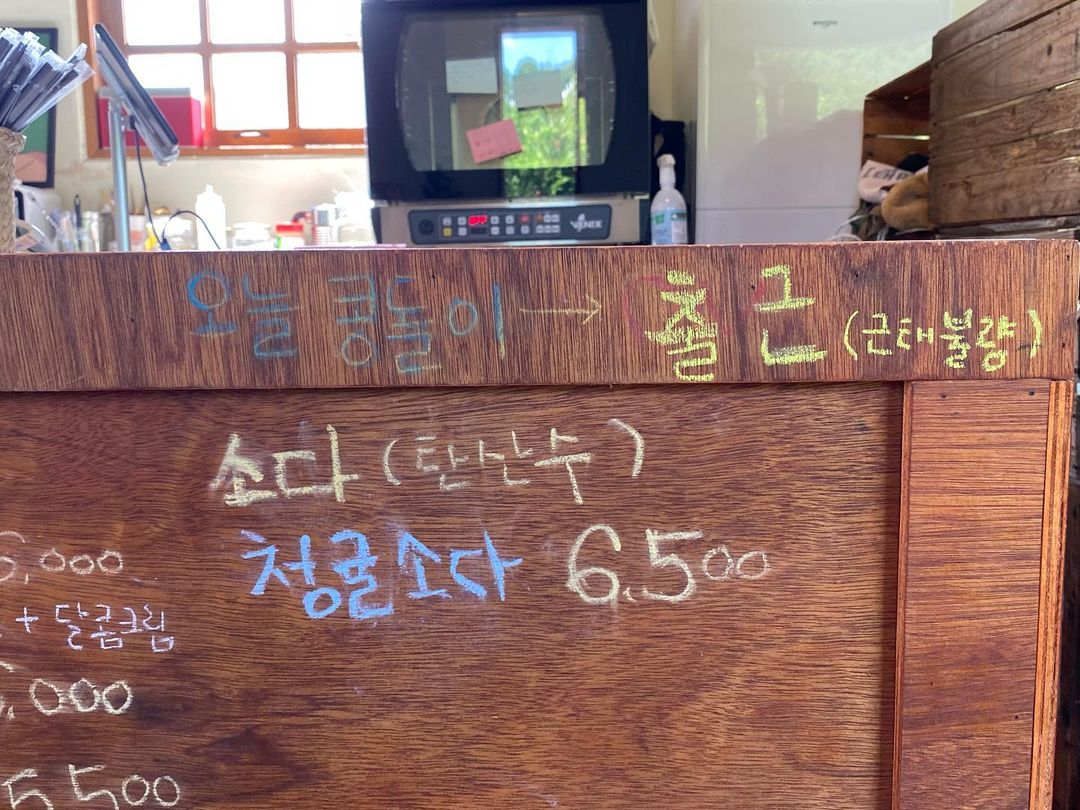 VENIX
오늘 쿵돌이 → 출근 (근태불량)
소다 (탄산수)
청귤소다 6.500
6,000
+ 달콤크림
,000
5.500